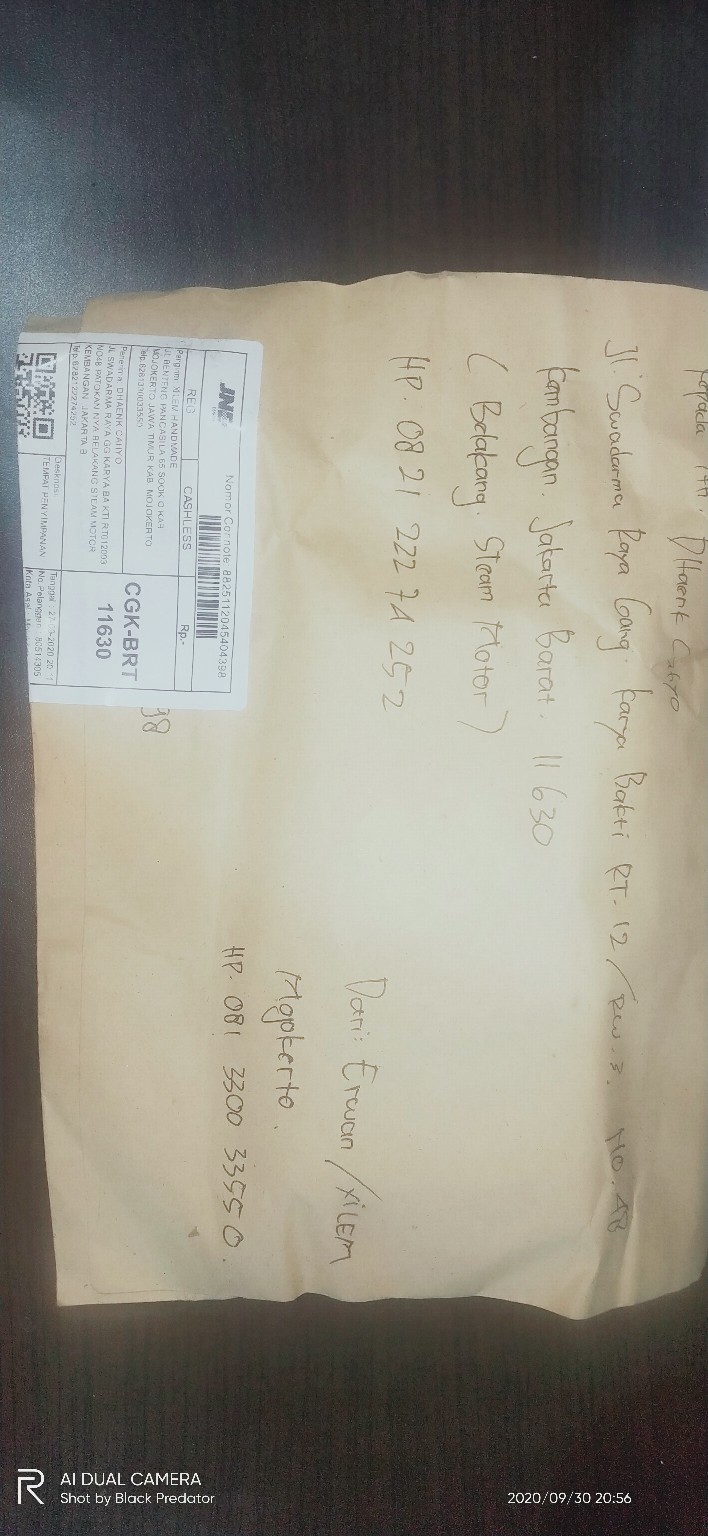 Kepada Yth.
DHaenk Cahyo
Jl. Swadarma Raya Gang. Karya Bakti RT-12/RW.3. NO.4B
Kambangan. Jakarta Barat. 11630
( Belakang. Steam Motor )
HP. 0821 222 74 252
Dari: Erwan /XILEM
Mojokerto.
HP. 081 3300 33550.
98
JNE
Nomor Connote 8825112045404398
REG
CASHLESS
Rp.-
Pengirim XILEM HANDMADE
JL BENTENG PANCASILA 65 SOOKO KAB
MOJOKERTO JAWA TIMUR KAB. MOJOKERTO
Telp.6281330033550
Penerima DHAENK CAHYO
JL SWADARMA RAYA GG KARYA BAKTI RT012003
KEMBANGAN JAKARTA B
Telp.6282122274252
CGK-BRT
11630
Deskripsi
TEMPAT PENYIMPANAN
Tanggal
No. Pelanggan 80514305
Kota Asal
AI DUAL CAMERA
Shot by Black Predator
2020/09/30 20:56